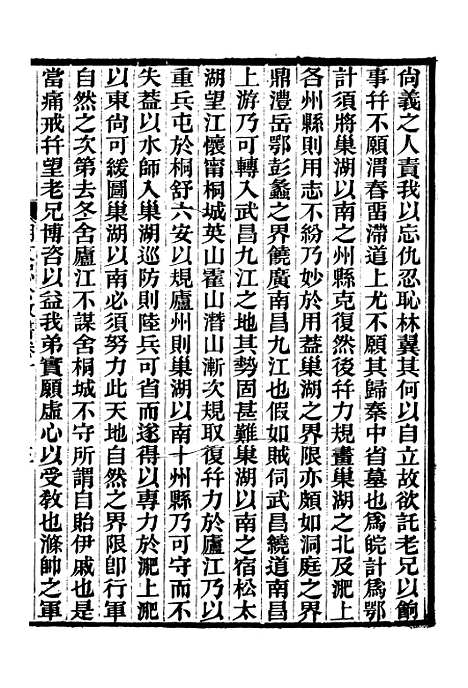 尙義之人責我以忘仇忍恥林翼其何以自立故欲託老兄以餉
事幷不願渭春畱滯道上尤不願其歸秦中省墓也爲皖計爲鄂
計須將巢湖以南之州縣克復然後幷力規畫巢湖之北及淝上
各州縣則用志不紛乃妙於用葢巢湖之界限亦頗如洞庭之界
鼎澧岳鄂彭蠡之界饒廣南昌九江也假如賊伺武昌繞道南昌
上游乃可轉入武昌九江之地其勢固甚難巢湖以南之宿松太
湖望江懷甯桐城英山霍山潛山漸次規取復幷力於廬江乃以
重兵屯於桐舒六安以規廬州則巢湖以南十州縣乃可守而不
失葢以水師入巢湖巡防則陸兵可省而遂得以專力於淝上淝
以東尙可緩圖巢湖以南必須努力此天地自然之界限卽行軍
自然之次第去冬舍廬江不謀舍桐城不守所謂自貽伊戚也是
當痛戒幷望老兄博咨以益我弟實願虛心以受敎也滌帥之軍